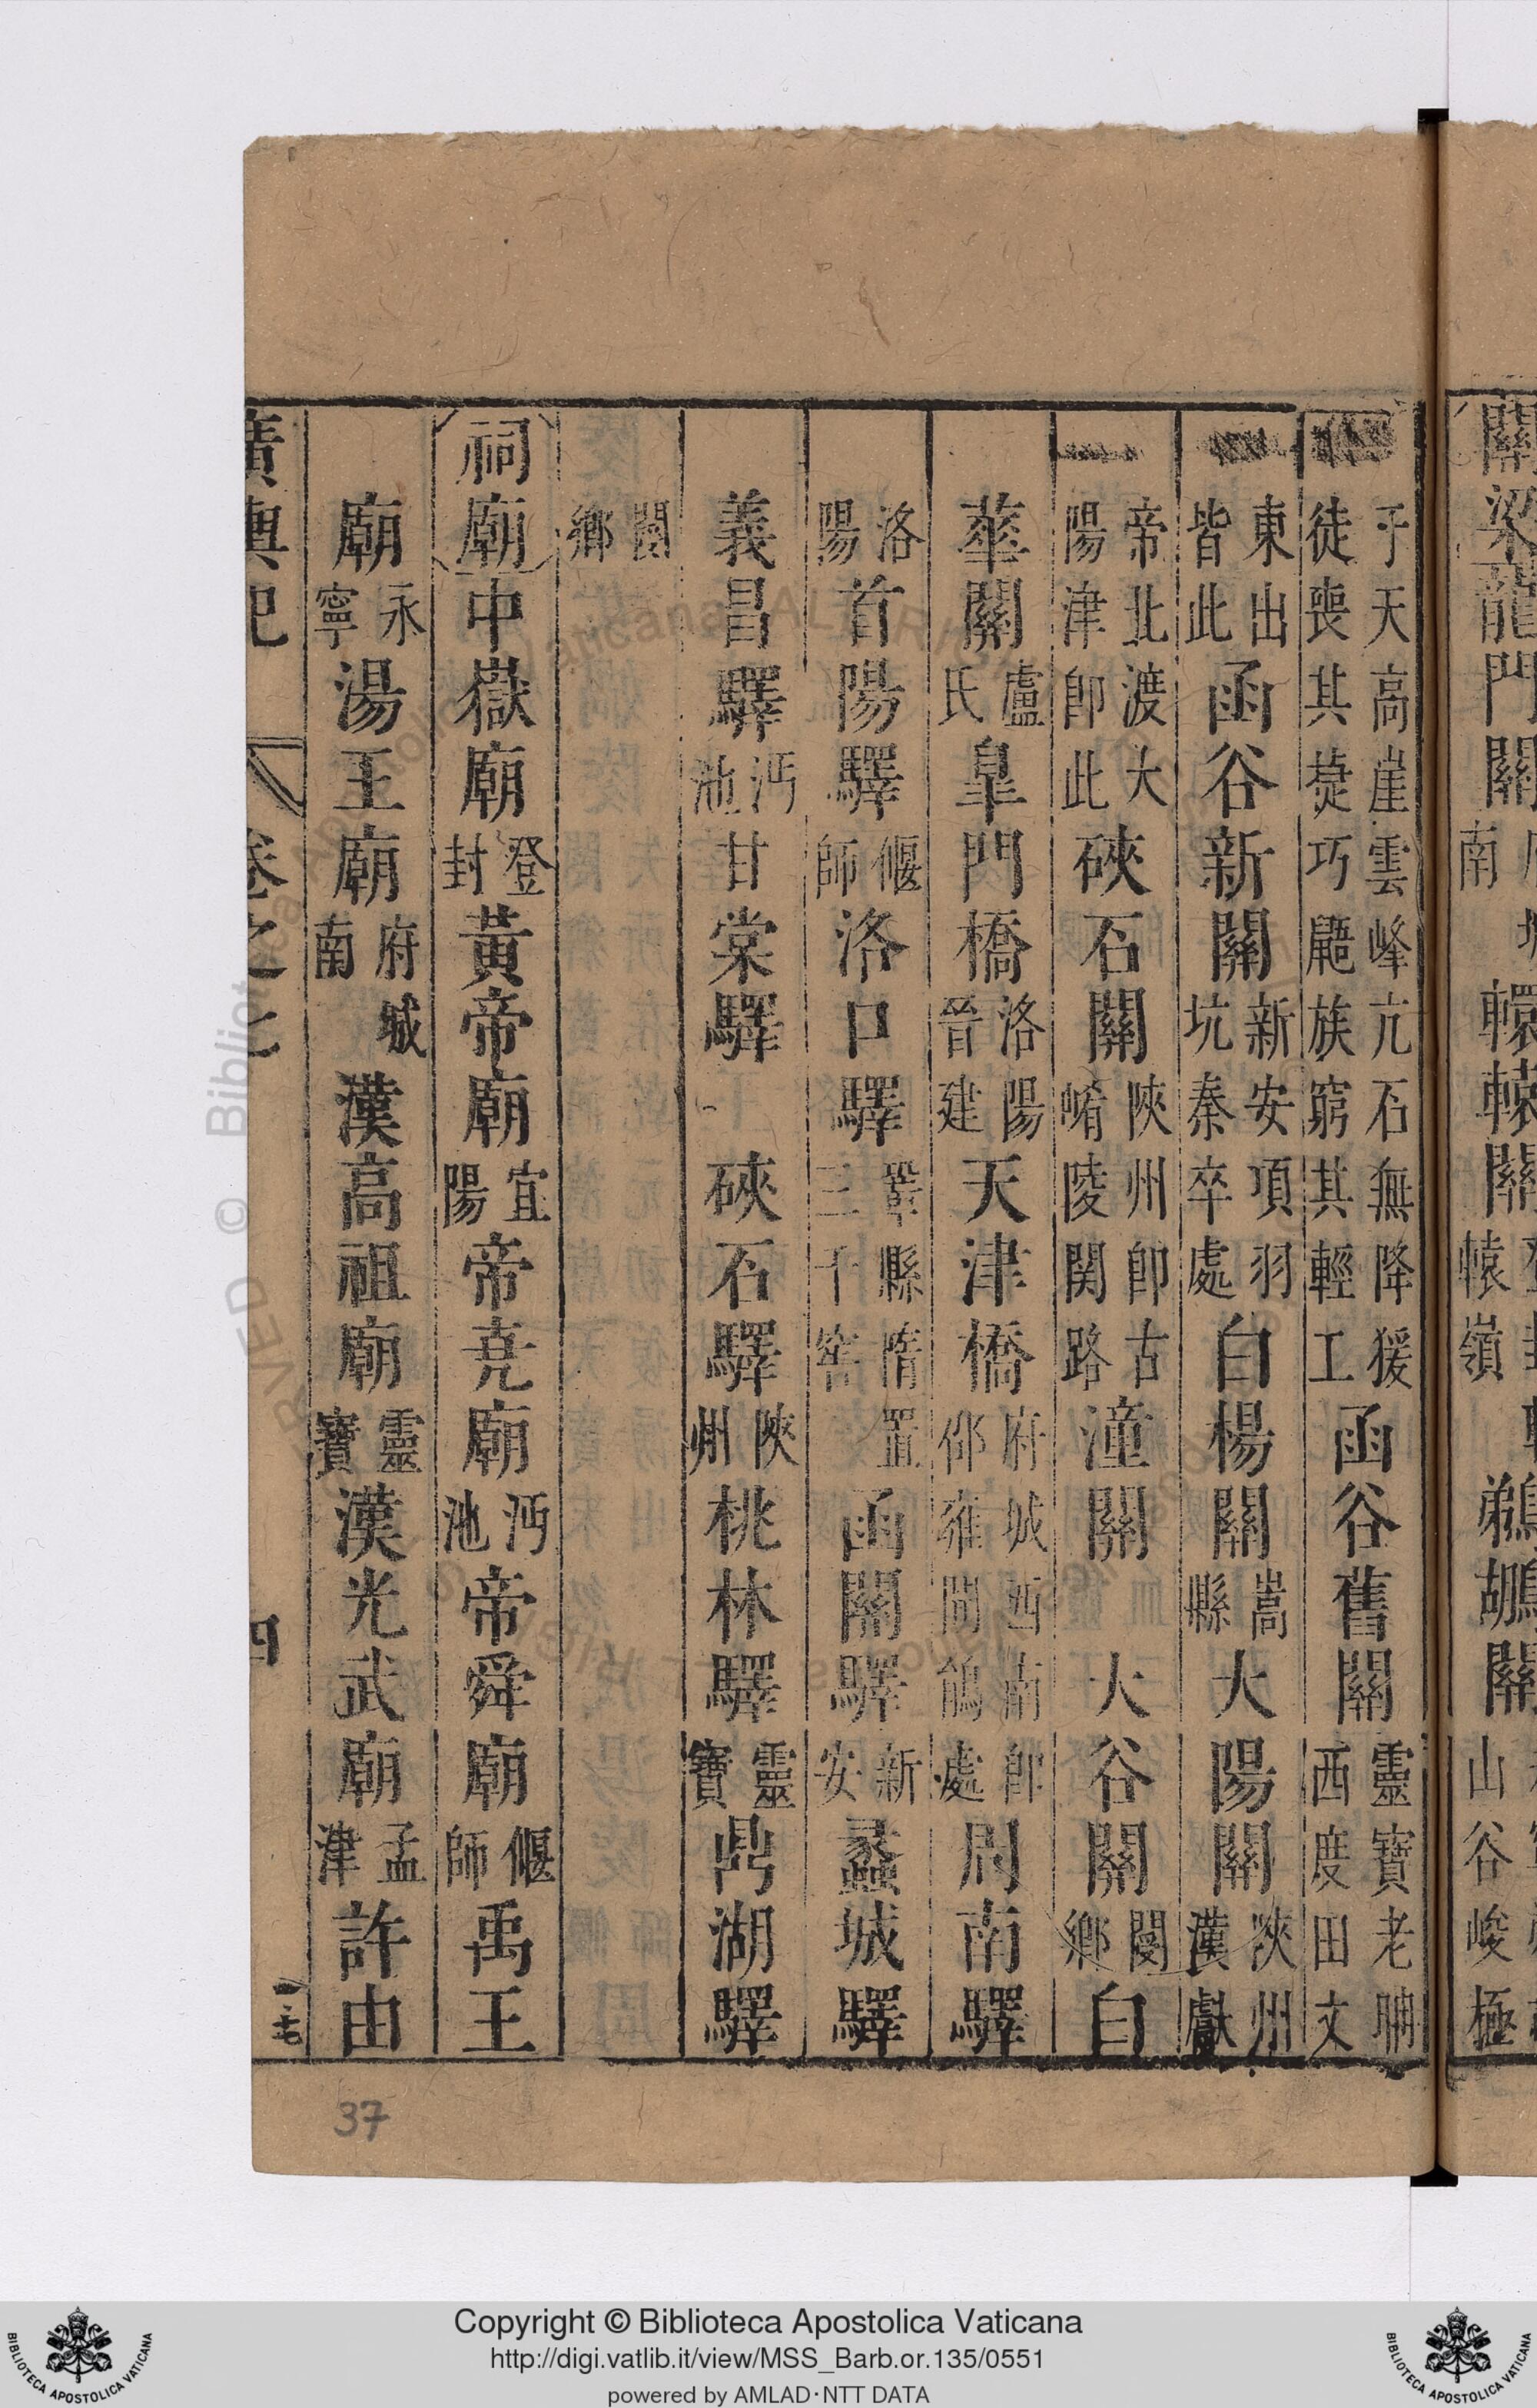 關梁龍門關南轘轅關轅嶺鵜鶘關山谷峻極
于天高崖雲峰亢石無降猨徒喪其捷巧鼯族窮其輕工函谷舊關靈寶老聃西度田文
東出皆此函谷新關新安項羽坑秦卒處白楊關嵩縣大陽關陝州漢獻
帝北渡大陽津卽此硤石關陝州卽古崤陵関路潼關大谷關閿鄉白
華關盧氏皐門橋洛陽晉建天津橋府城西南卽邵雍聞鵑處周南驛
洛陽首陽驛偃師洛口驛鞏縣隋置三千窖函關驛新安蠡城驛
義昌驛沔池甘棠驛硤石驛陝州桃林驛靈寶鼎湖驛
閿鄉
祠廟中嶽廟登封黃帝廟宜陽帝尭廟沔池帝舜廟偃師禹王
廟永寧湯王廟府城南漢高祖廟靈寶漢光武廟孟津許由
廣輿記 卷之七 四
37
Copyright © Biblioteca Apostolica Vaticana
http://digi.vatlib.it/view/MSS_Barb.or.135/0551
powered by AMLAD·NTT DATA
BIBLIOTECA APOSTOLICA VATICANA
BIBLIOTECA APOSTOLICA VATICANA